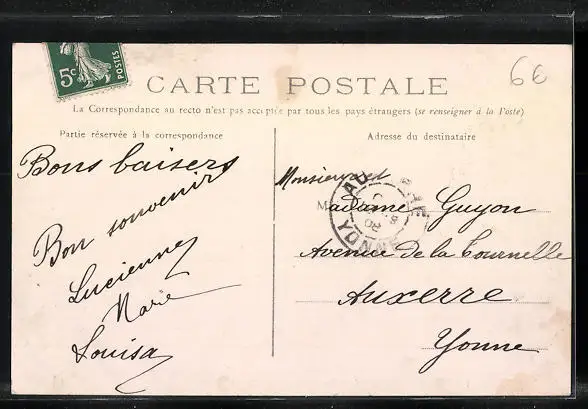 5c POSTES
6€
CARTE POSTALE
La Correspondance au recto n'est pas acceptée par tous les pays étrangers (se renseigner à la Poste)
Partie réservée à la correspondance
Adresse du destinataire
Bons baisers
Bon souvenir
Lucienne
Marie
Louisa
Monsieur et
Madame Guyon
Avenue de la Tournelle
Auxerre
Yonne
YONNE